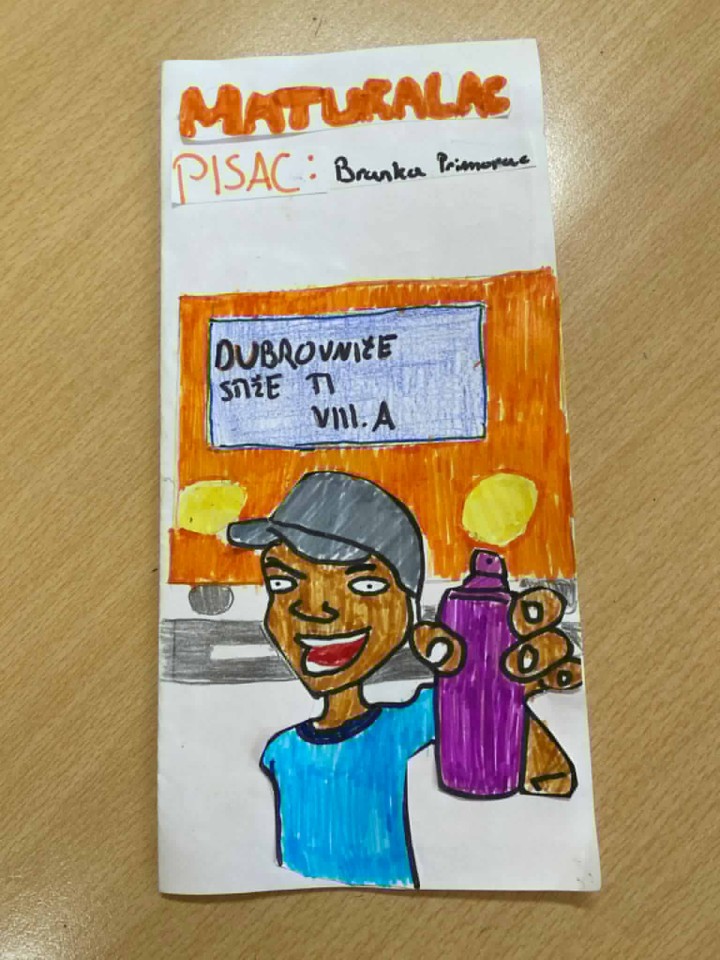 MATURALAC
PISAC: Branka Primorac
DUBROVNIČE
STIŽE TI
VIII. A